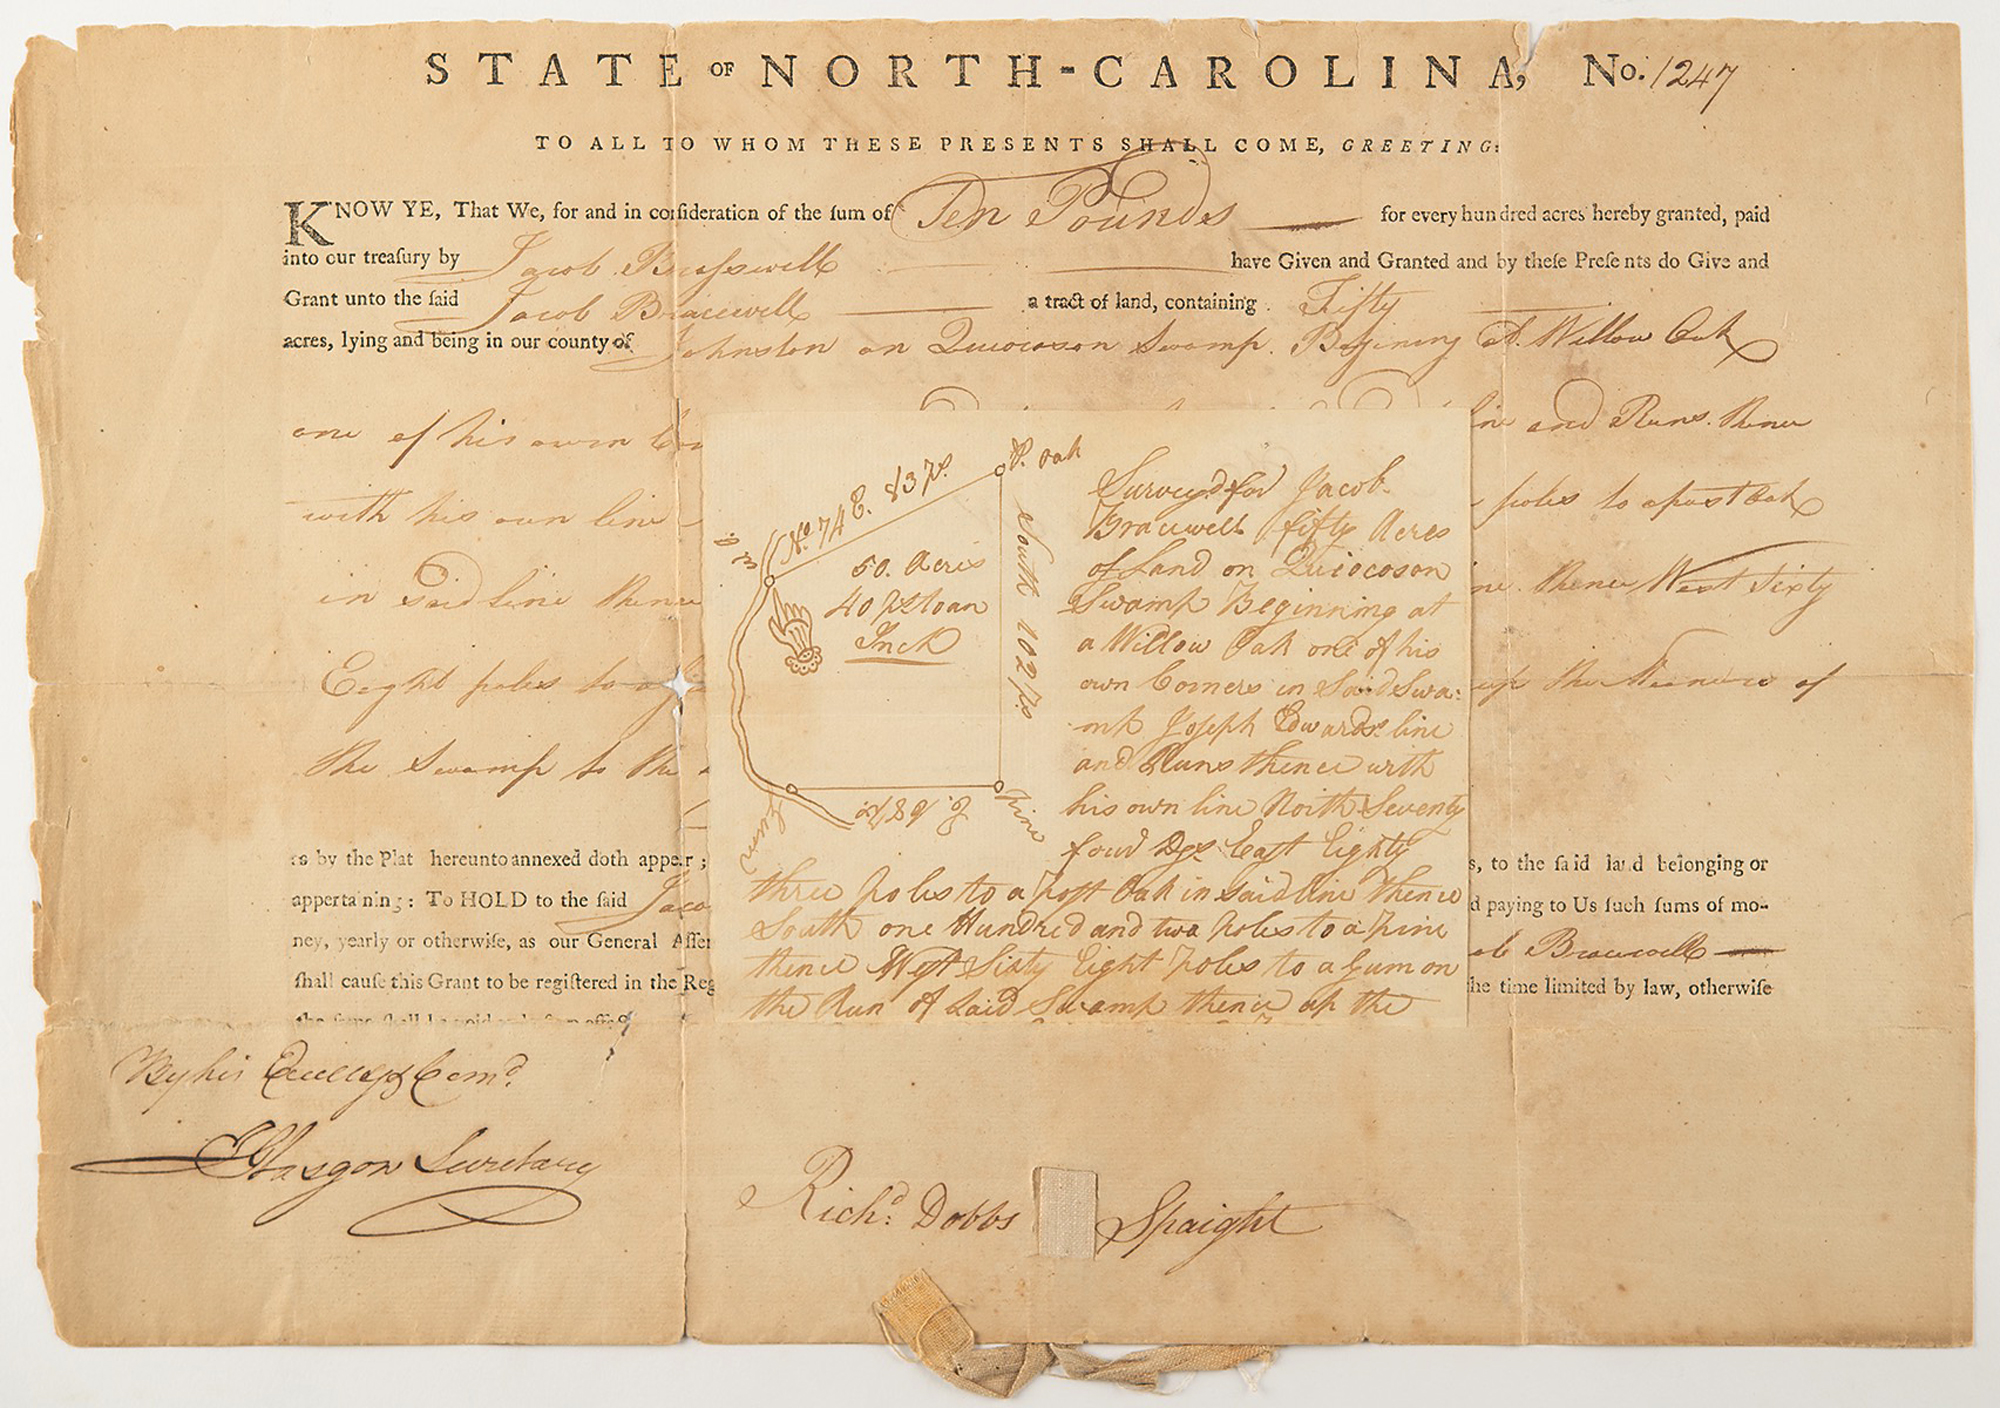 STATE OF NORTH-CAROLINA, No. 1247
TO ALL TO WHOM THESE PRESENTS SHALL COME, GREETING:
KNOW YE, That We, for and in conſideration of the ſum of Ten Pounds for every hundred acres hereby granted, paid
into our treaſury by Jacob Braſswell have Given and Granted and by theſe Preſents do Give and
Grant unto the ſaid Jacob Bracewell a tract of land, containing Fifty
acres, lying and being in our county of Johnston on Quiocoson Swamp. Begining At Willow Oak
one of his own Cor
line and Runs. thence
with his own line
poles to a post Oak
in Said line thence
thence West Sixty
Eight poles to a
up the of
the Swamp to the
as by the Plat hereunto annexed doth appear;
s, to the ſaid land belonging or
appertaining: To HOLD to the ſaid Jaco
d paying to Us ſuch ſums of mo-
ney, yearly or otherwiſe, as our General Aſſe
ob Bracewell
ſhall cauſe this Grant to be regiſtered in the Reg
he time limited by law, otherwiſe
the ſame ſhall be void and of no effect
P. Oak
No. 74 E. 83 ps.
South 102 ps
50. Acres
40 ps to an
Inch
E. 68 ps
Pine
Survey'd for Jacob
Bracewell fifty Acres
of Land on Quiocoson
Swamp Beginning at
a Willow Oak one of his
own Corners in Said Swa:
mp Joseph Edwards's line
and Runs thence with
his own line North Seventy
four Dgs. Eaſt Eighty
three poles to a poſt Oak in said line thence
South one Hundred and two poles to a pine
thence Weſt Sixty Eight poles to a Gum on
the Run of said Swamp thence up the
By his Excellys. Comd.
J Glasgow Secretary
Richd. Dobbs Spaight